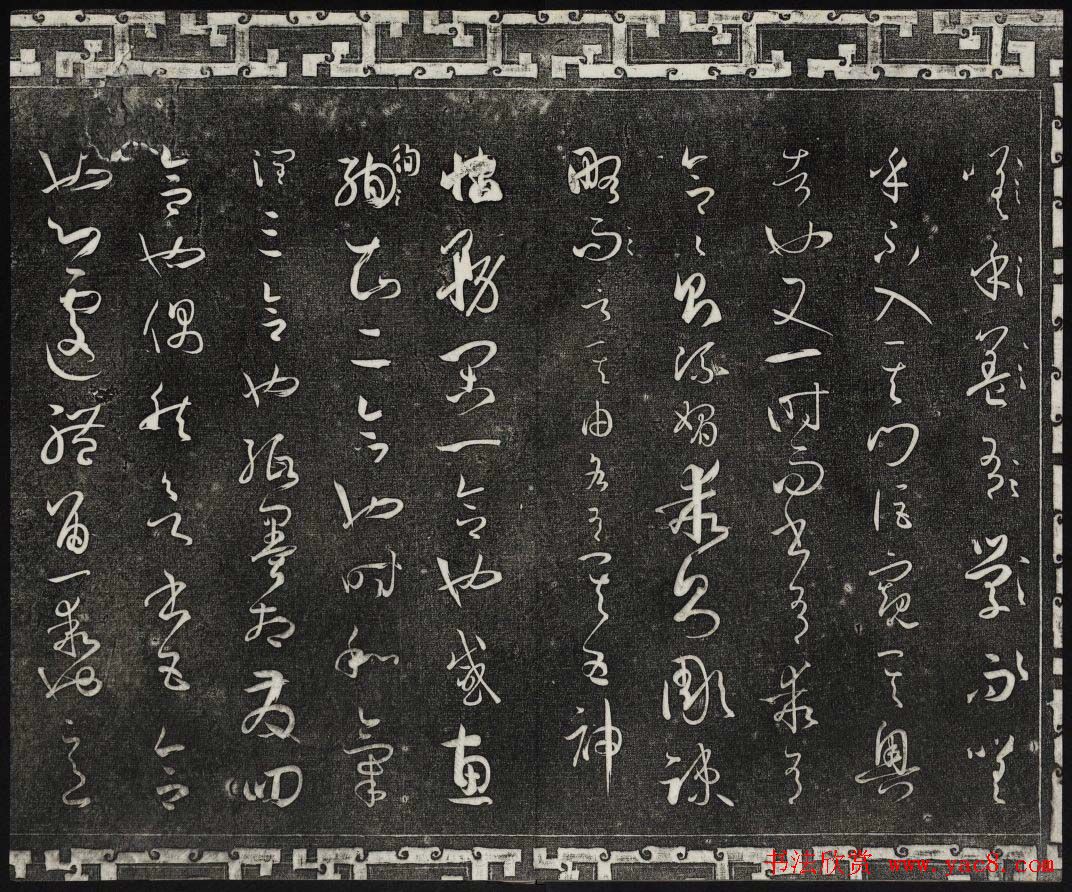 嗟未盖有學而嗟
乎不入其門詎窺其奧
者也又一時而書有乖有
合合則流媚乖則彫疎
略而言其由各有其五神
怡務閑一合也感惠
徇知二合也時和氣
潤三合也紙墨相發四
合也偶然欲書五合
也心遽體留一乖也意
书法欣赏 www.yac8.com